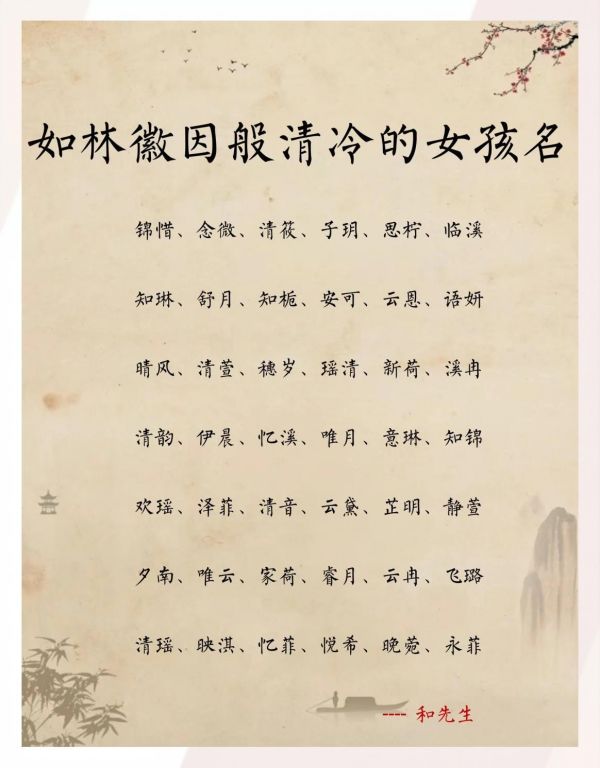 如林徽因般清冷的女孩名
锦惜、念微、清筱、子玥、思柠、临溪
知琳、舒月、知栀、安可、云恩、语妍
晴风、清萱、穗岁、瑶清、新荷、溪冉
清韵、伊晨、忆溪、唯月、意琳、知锦
欢瑶、泽菲、清音、云黛、芷明、静萱
夕南、唯云、家荷、睿月、云冉、飞璐
清瑶、映淇、忆菲、悦希、晚菀、永菲
---- 和先生